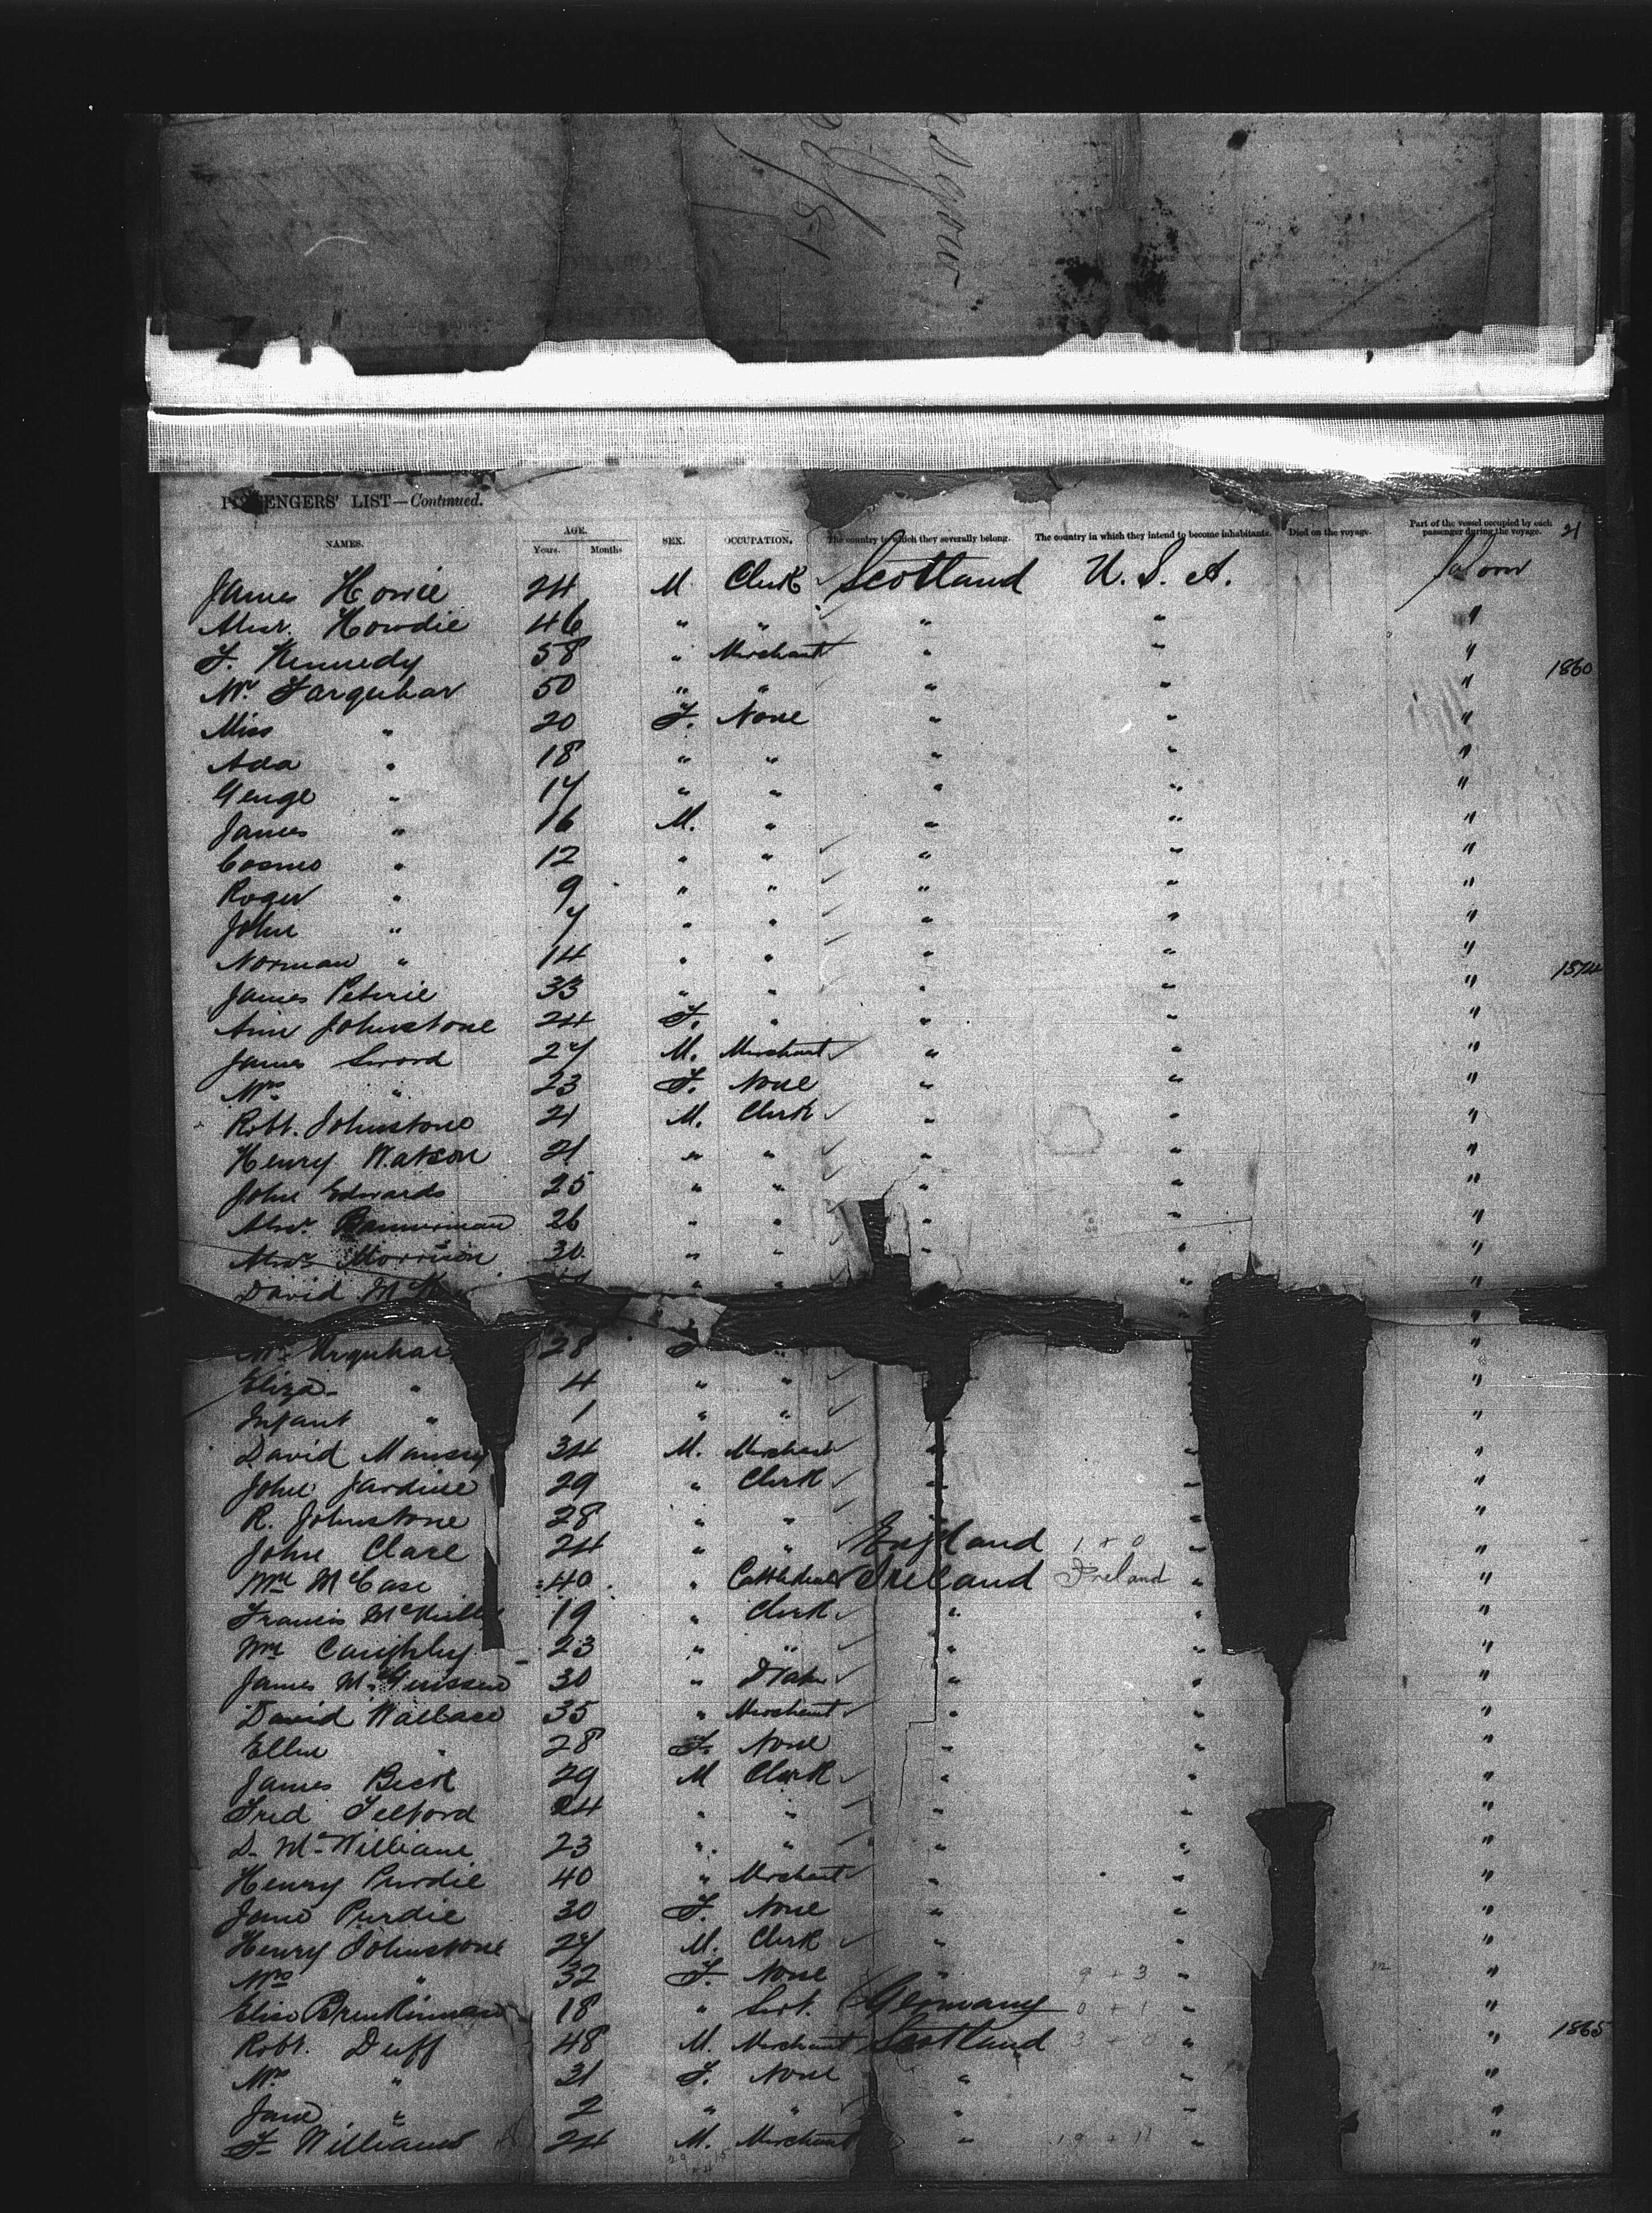 PASSENGERS' LIST—Continued.
NAMES. AGE. Years. Months SEX. OCCUPATION. The country to which they severally belong. The country in which they intend to become inhabitants. Died on the voyage. Part of the vessel occupied by each passenger during the voyage. 21
James Howie 24 M Clerk Scotland U. S. A. Saloon
Alexr. Howdie 46 " " " " "
J. Kennedy 58 " Merchant " " "
1860
Mr. Farquhar 50 " " " " "
Miss " 20 F. None " " "
Ada " 18 " " " " "
" 17 " " " " "
James " 16 M. " " " "
Cosmo " 12 " " " " "
Roger " 9 " " " " "
John " 7 " " " " "
Norman " 14 " " " " "
James Petrie 33 " " " " "
Ann Johnstone 24 F. " " " "
James Sword 27 M. Merchant " " "
Mrs " 23 F. None " " "
Robt. Johnstone 21 M. Clerk " " "
Henry Watson 21 " " " " "
John Edwards 25 " " " " "
Alexr. Bannerman 26 " " " " "
Alexr. Morrison 30 " " " " "
David " " " "
"
Urquhar 28 "
Eliza " 4 " " "
Infant " 1 " " "
David 34 M. Merchant " " "
John Jardine 29 " Clerk " " "
R. Johnstone 28 " " " "
John Clare 24 " " England 1 + 0 " "
Wm McCase 40 " Ireland Ireland " "
Francis 19 " Clerk " " "
Wm Caughley 23 " " " " "
James 30 " " " "
David Wallace 35 " Merchant " " "
Ellen " 28 F. None " " "
James Beck 29 M Clerk " " "
Fred Telford 24 " " " " "
D. McWilliams 23 " " " " "
Henry Purdie 40 " Merchant " " "
Jane Purdie 30 F. None " " "
Henry Johnstone 27 M. Clerk " " "
Mrs " 32 F. None " 9 + 3 " 12 "
Elise Brenkinman 18 " Servt. Germany 0 + 1 " "
Robt. Duff 48 M. Merchant Scotland 3 + 0 " " 1865
Mrs " 31 F. None " " "
Jane " 2 " " " " "
Williams 24 M. Merchant " 19 + 11 " "